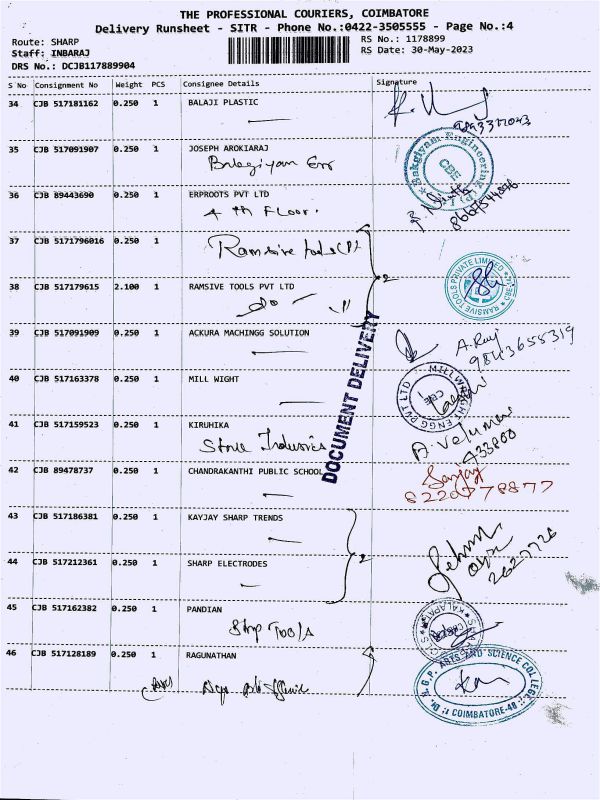 THE PROFESSIONAL COURIERS, COIMBATORE
Delivery Runsheet - SITR - Phone No.:0422-3505555 - Page No.:4
Route: SHARP
RS No.: 1178899
Staff: INBARAJ
RS Date: 30-May-2023
DRS No.: DCJB117889904
S No Consignment No Weight PCS Consignee Details Signature
34 CJB 517181162 0.250 1 BALAJI PLASTIC
35 CJB 517091907 0.250 1 JOSEPH AROKIARAJ
Bakgiyam Engineering
CBE
36 CJB 89443690 0.250 1 ERPROOTS PVT LTD
4 th Floor.
37 CJB 5171796016 0.250 1 Ramsive tools
38 CJB 517179615 2.100 1 RAMSIVE TOOLS PVT LTD
2
RAMSIVE TOOLS PRIVATE LIMITED
DOCUMENT DELIVERY
39 CJB 517091909 0.250 1 ACKURA MACHINGG SOLUTION
A. Raj
9843655319
40 CJB 517163378 0.250 1 MILL WIGHT
MILLWRIGHT ENGG PVT LTD
CBE
41 CJB 517159523 0.250 1 KIRUHIKA
Stone Industries
A. Velumani
42 CJB 89478737 0.250 1 CHANDRAKANTHI PUBLIC SCHOOL
Sanjay
8220778877
43 CJB 517186381 0.250 1 KAYJAY SHARP TRENDS
44 CJB 517212361 0.250 1 SHARP ELECTRODES
2
2627726
45 CJB 517162382 0.250 1 PANDIAN
Tools
46 CJB 517128189 0.250 1 RAGUNATHAN
Dr. N.G.P. ARTS AND SCIENCE COLLEGE
COIMBATORE-48